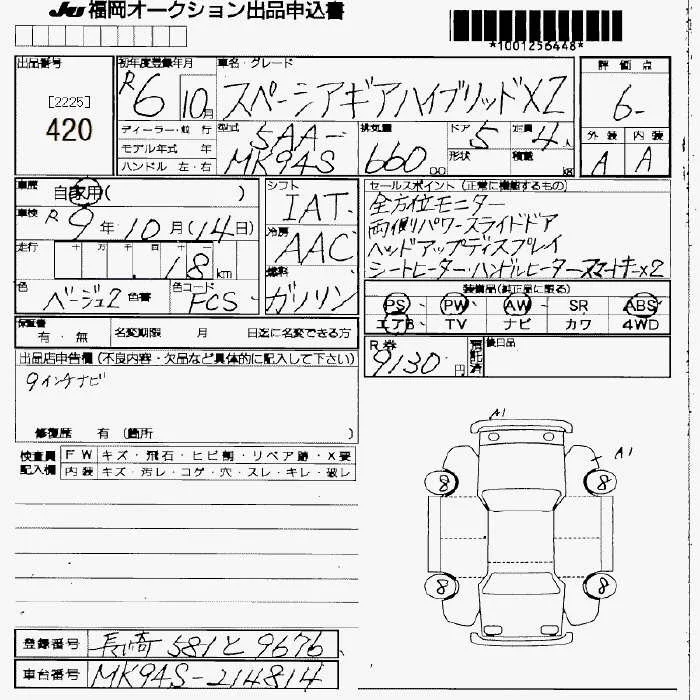 JU 福岡オークション出品申込書
*1001256448*
出品番号
[2225]
420
初年度登録年月
R6 10月
車名・グレード
スペーシアギアハイブリッドX2
評価点
6-
外装 内装
A A
ディーラー・並行
モデル年式 年
ハンドル 左・右
型式
5AA-
MK94S
排気量
660 CC
ドア
5
定員
4人
形状
積載
kg
車歴
自家用( )
車検 R9年10月(14日)
走行
十 万 千 百 十 一
18 km
色
ベージュ2 色替
色コード
FCS
シフト
IAT
冷房
AAC
燃料
ガソリン
セールスポイント(正常に機能するもの)
全方位モニター
両側パワースライドドア
ヘッドアップディスプレイ
シートヒーター・ハンドルヒーター スマートキーx2
装備品(純正品に限る)
PS PW AW SR ABS
エアB TV ナビ カワ 4WD
保証書
有・無
名変期限 月 日迄に名変できる方
R券
9130円
預託済
後日品
出品店申告欄(不良内容・欠品など具体的に記入して下さい)
9インチナビ
修復歴 有(箇所 )
検査員記入欄
FW キズ・飛石・ヒビ割・リペア跡・X要
内装 キズ・汚レ・コゲ・穴・スレ・キレ・破レ
A1
A1
8 8
8 8
登録番号 長崎 581 と 9676
車台番号 MK94S-214814